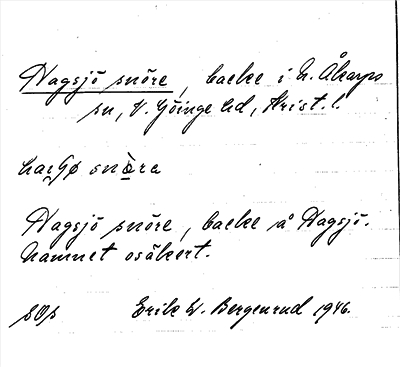 Hagsjö snöre, backe i N. Åkarps
sn, V. Göinge hd, Krist. l.
snöre
Hagsjö snöre, backe å Hagsjö.
Namnet osäkert.
Erik W. Bergenrud 1946.